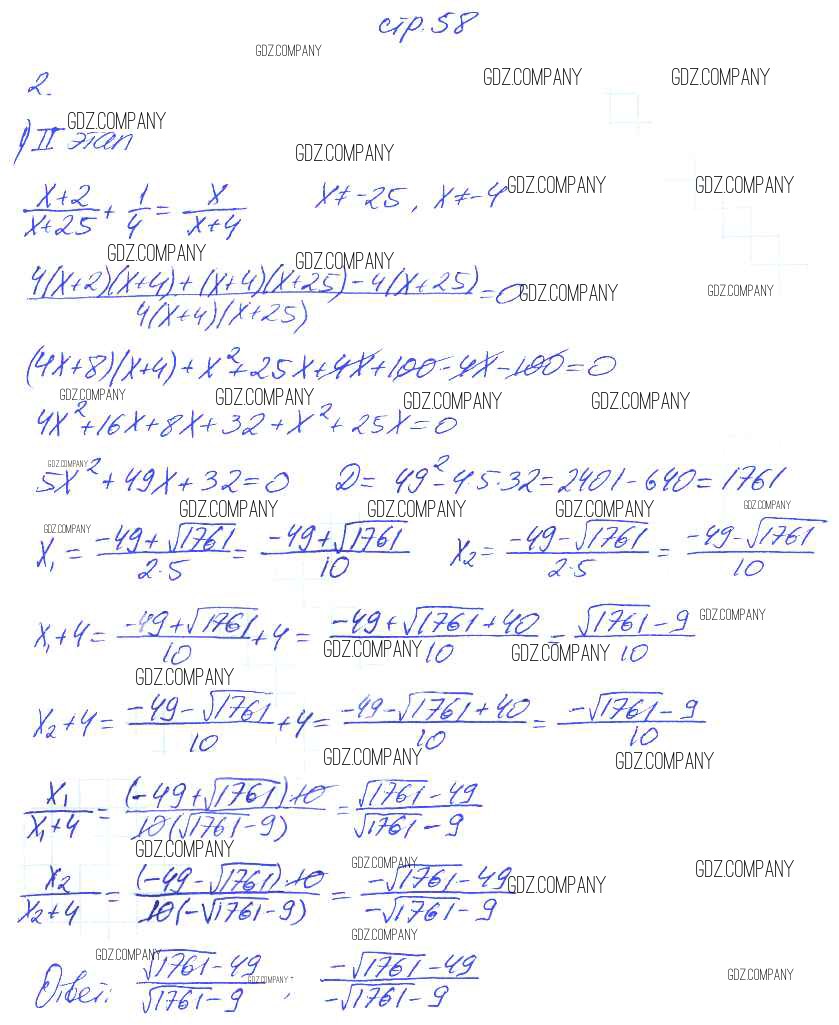 стр. 58
GDZ.COMPANY
2.
GDZ.COMPANY GDZ.COMPANY
GDZ.COMPANY
1) II этап
GDZ.COMPANY
(x+2)/(x+25) + 1/4 = x/(x+4) x≠-25, x≠-4
GDZ.COMPANY GDZ.COMPANY
GDZ.COMPANY GDZ.COMPANY
(4(x+2)(x+4)+(x+4)(x+25)-4(x+25))/(4(x+4)(x+25)) = 0
GDZ.COMPANY GDZ.COMPANY
(4x+8)(x+4)+x²+25x+4x+100-4x-100=0
GDZ.COMPANY GDZ.COMPANY GDZ.COMPANY GDZ.COMPANY
4x²+16x+8x+32+x²+25x=0
GDZ.COMPANY
5x²+49x+32=0 D= 49²-4·5·32=2401-640=1761
GDZ.COMPANY GDZ.COMPANY GDZ.COMPANY GDZ.COMPANY
GDZ.COMPANY
x₁ = (-49+√1761)/(2·5) = (-49+√1761)/10 x₂ = (-49-√1761)/(2·5) = (-49-√1761)/10
GDZ.COMPANY
x₁+4 = (-49+√1761)/10 + 4 = (-49+√1761+40)/10 = (√1761-9)/10
GDZ.COMPANY GDZ.COMPANY
GDZ.COMPANY
x₂+4 = (-49-√1761)/10 + 4 = (-49-√1761+40)/10 = (-√1761-9)/10
GDZ.COMPANY GDZ.COMPANY
x₁/(x₁+4) = ((-49+√1761)·10)/(10(√1761-9)) = (√1761-49)/(√1761-9)
GDZ.COMPANY
GDZ.COMPANY GDZ.COMPANY
x₂/(x₂+4) = ((-49-√1761)·10)/(10(-√1761-9)) = (-√1761-49)/(-√1761-9)
GDZ.COMPANY
GDZ.COMPANY
GDZ.COMPANY
Ответ: (√1761-49)/(√1761-9), (-√1761-49)/(-√1761-9)
GDZ.COMPANY GDZ.COMPANY